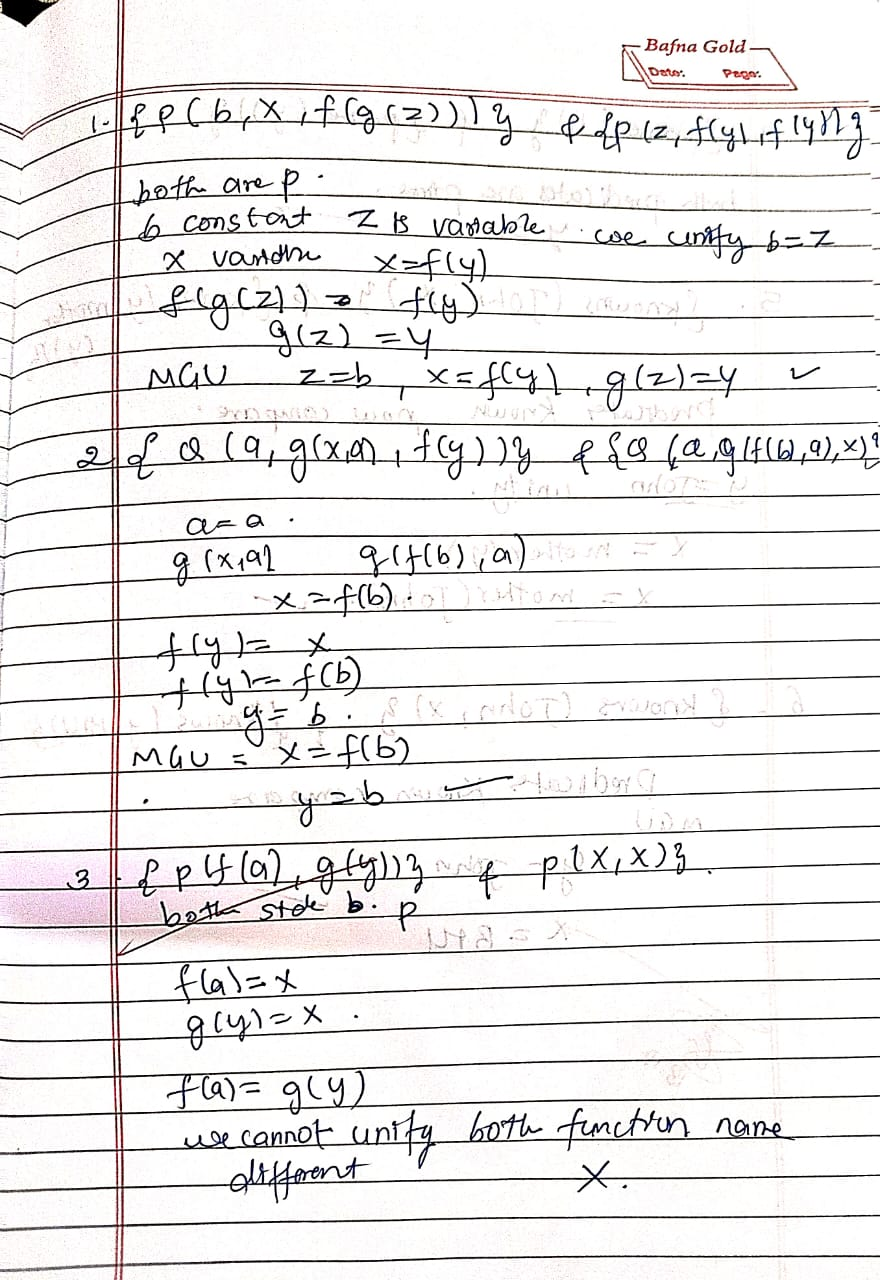 Bafna Gold
Date: Page:
1- { P(b, x, f(g(z))) } & {p(z, f(y), f(y))}
both are p.
b constant z is variable. we unify b=z
x x=f(y)
f(g(z)) = f(y)
g(z) = y
MGU z=b, x=f(y), g(z)=y ✓
2 { Q (a, g(x,a), f(y)) } & {Q (a, g(f(b), a), x)}
a = a .
g(x,a) g(f(b), a)
x = f(b).
f(y) = x
f(y) = f(b)
y = b .
MGU = x = f(b)
. y = b ✓
3 - { p(f(a), g(y)) } & p(x, x) }.
both side b. p
f(a) = x
g(y) = x .
f(a) = g(y)
we cannot unify both function name
different X.